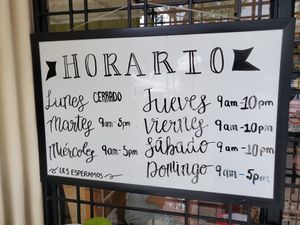 HORARIO
Lunes CERRADO
Martes 9am-5pm
Miércoles 9am-5pm
LES ESPERAMOS
Jueves 9am-10pm
Viernes 9am-10pm
Sábado 9am-10pm
Domingo 9am-5pm